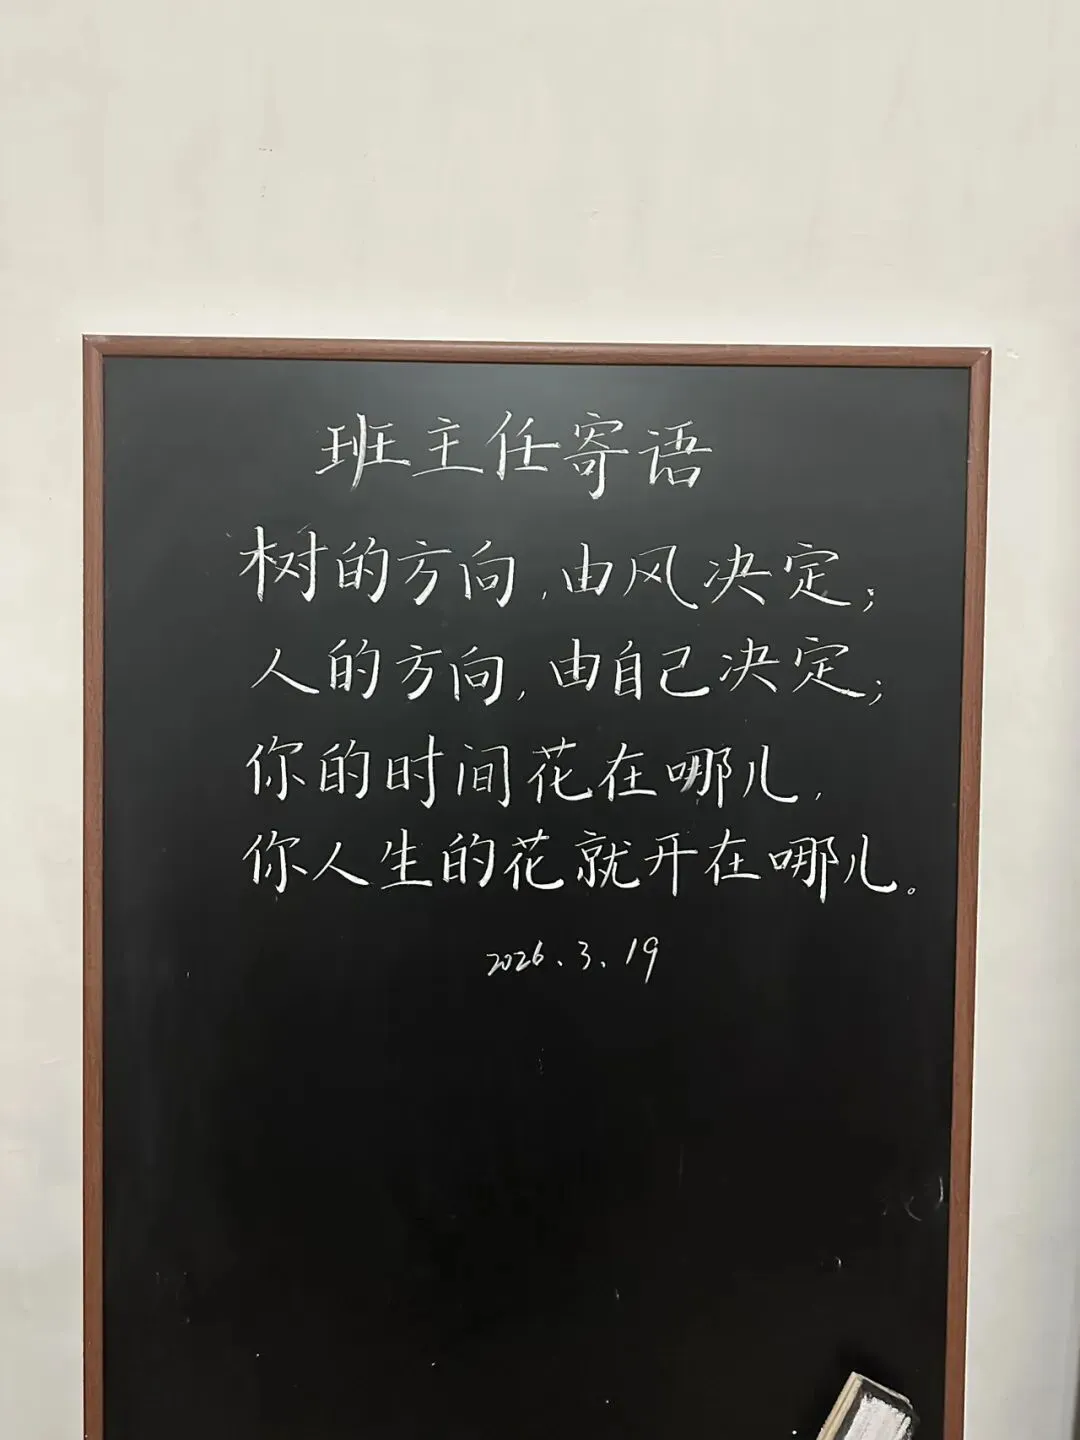 班主任寄语
树的方向,由风决定;
人的方向,由自己决定;
你的时间花在哪儿,
你人生的花就开在哪儿。
2026、3、19